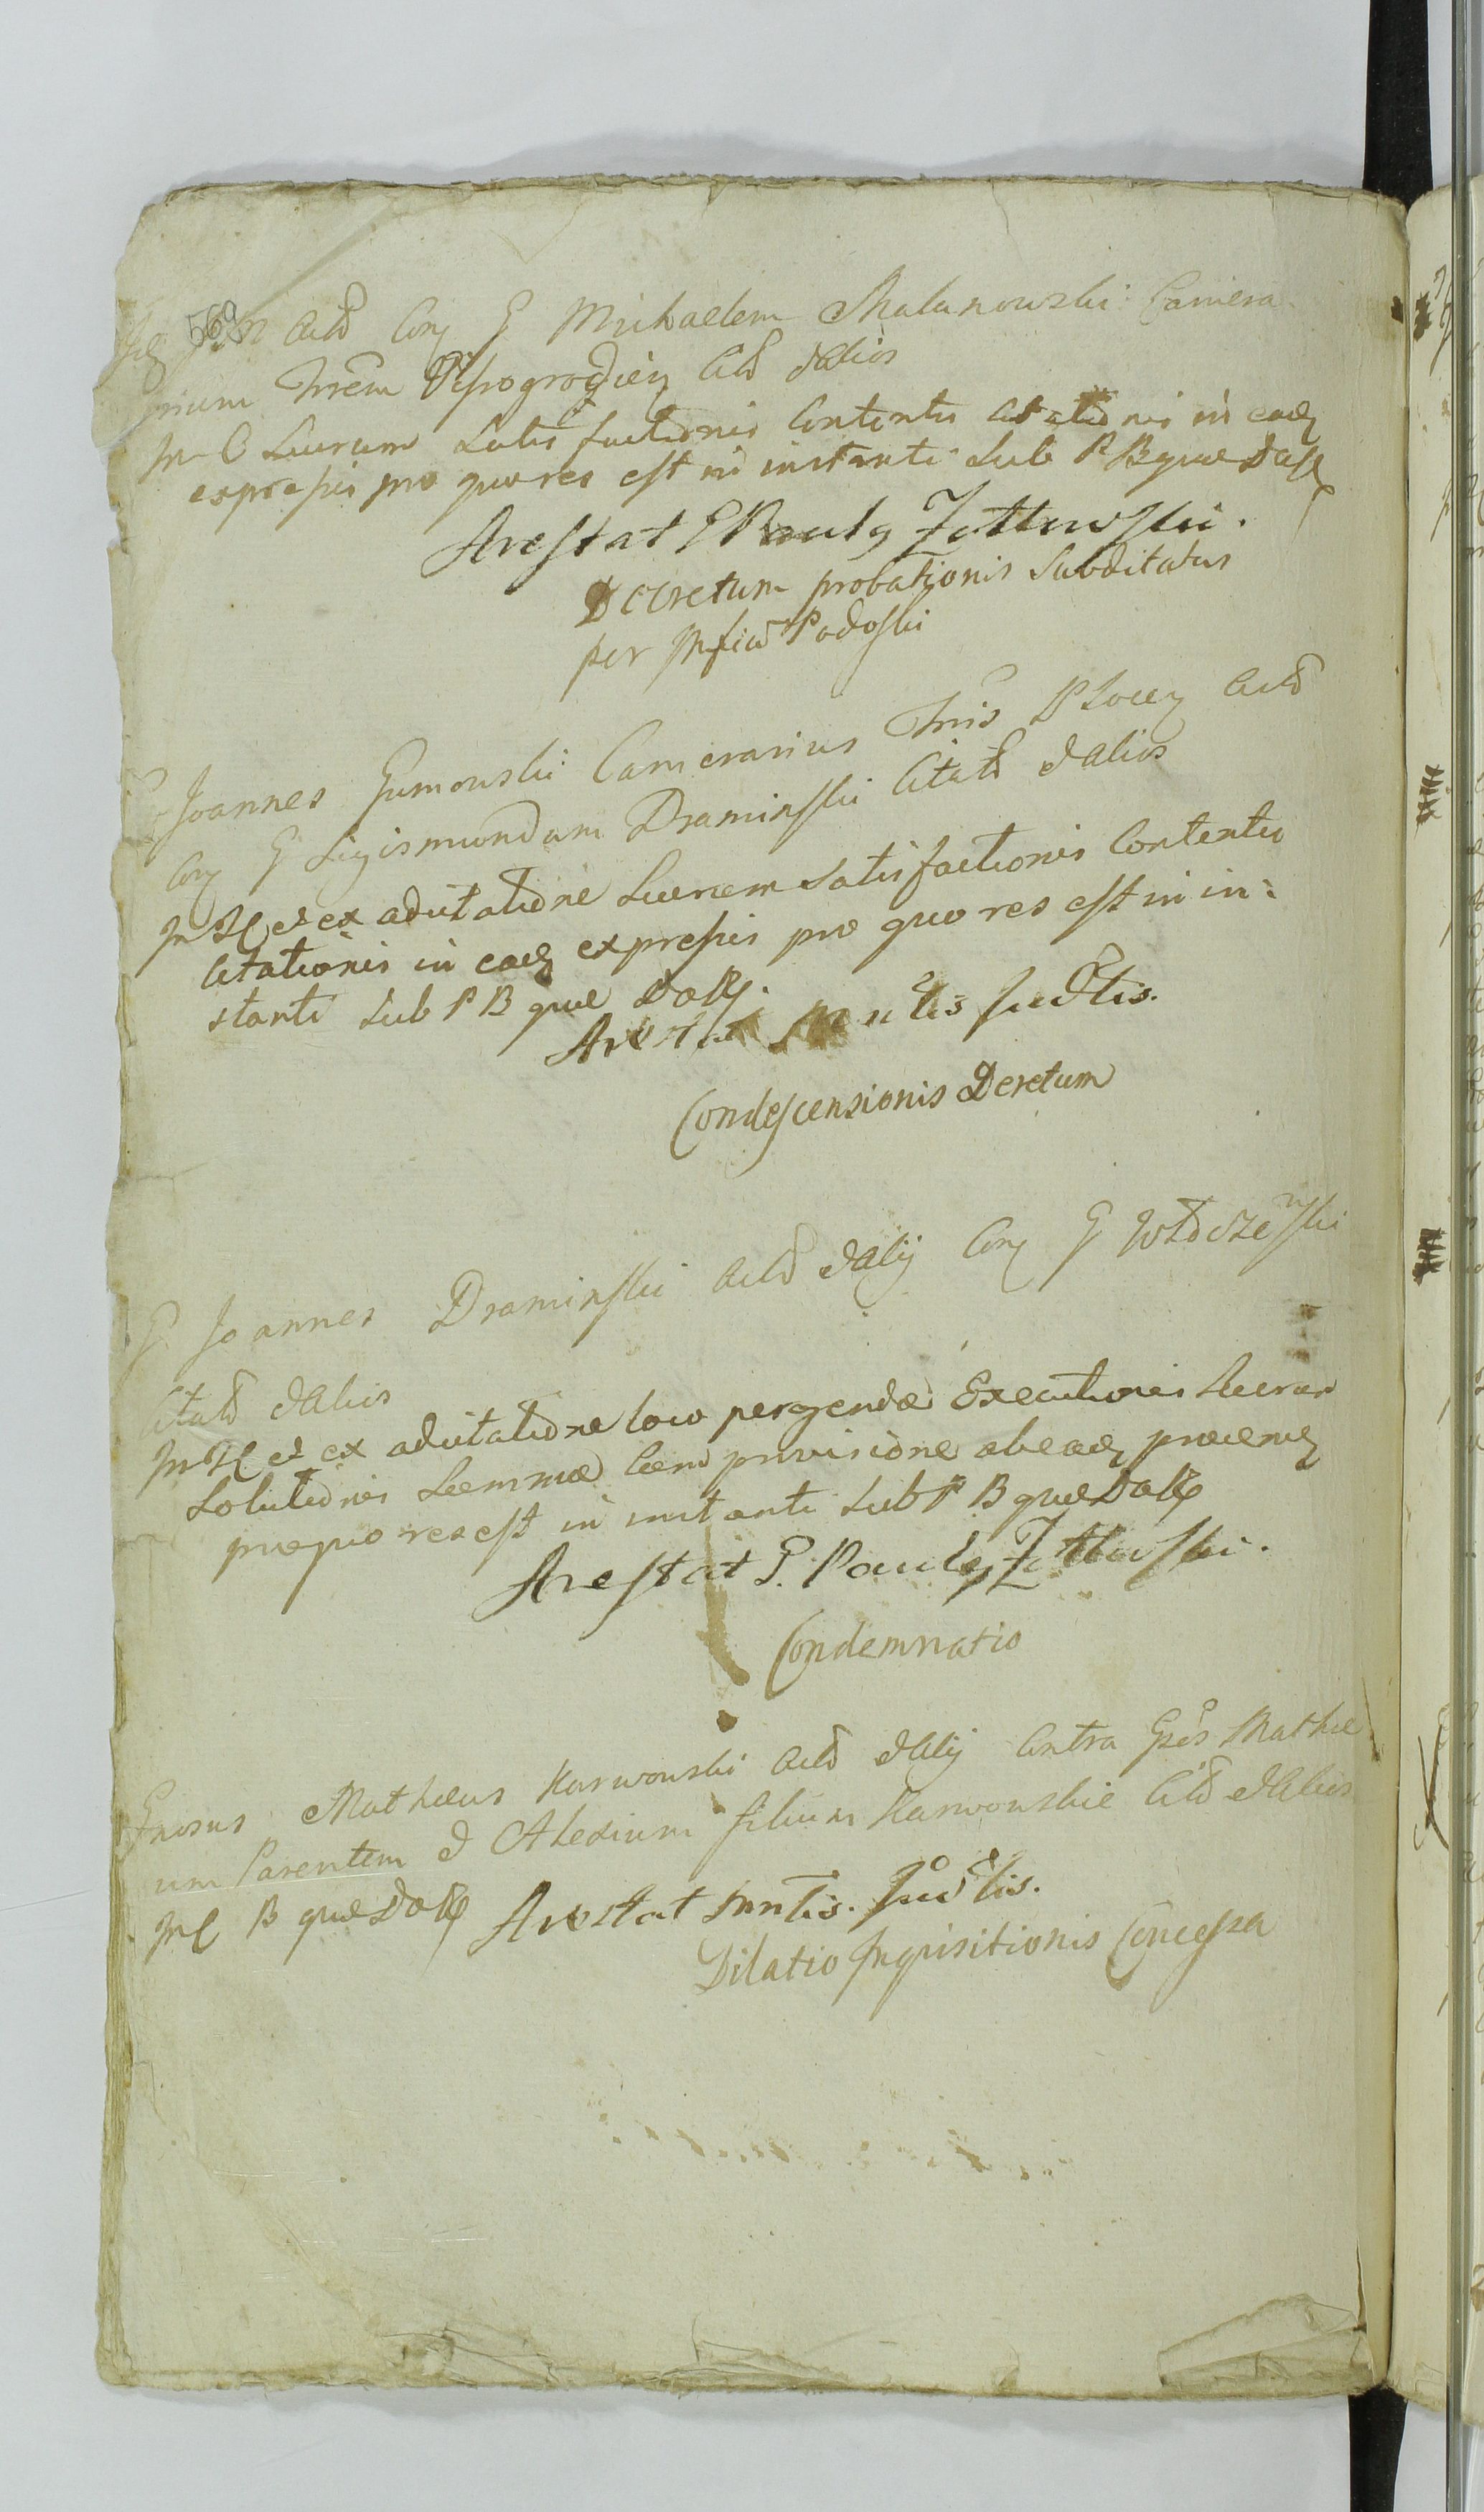 569 Actō Con G Michaelem Malanowski Camera
rium Trrēm Vissogrodien Citō dalios
In C Suarum Satisfactionis Contentis Citationis in eadē
expressis pro qua res est in instanti Sub P B que Dass
Arestat G Paulg Zottowski.
Decretum probationis Subditatus
per Mfico Podoski
G Joannes Gumowski Camerarius Trris Plocen Actō
Con G Sigismundum Draminski Citatō dalios
In H C et ex adcitatione Suarem Satisfactionis Contentis
Citationis in eadē expressis pro quo res est in in:
stanti Sub P B que Dass.
Arestat Mntis Judtis.
Condescensionis Deretum
G Joannes Draminski Actō dalij Con G Włoszenski
Citatō dalios
In H C et ex adcitatione loco pergendæ Executionis Suarar
Solutionis Summæ Cum provisione ab eadē proven
pro quo res est in instanti Sub P B que Dass
Arestat G. Paulg Zottowski.
Condemnatio
Gnosus Mathæus Karwowski Actō dalij Contra Gsos Mathæ
um Parentem & Alexium filium Karwowskie Citō dalios
In C B que Dass Arestat Mntis. Judtis.
Dilatio Inquisitionis Concessa